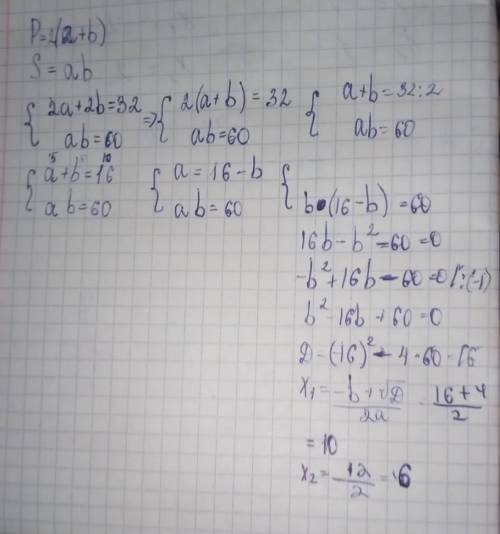 P=2(a+b)
S=ab
{ 2a+2b=32 => { 2(a+b)=32 { a+b=32:2
ab=60 ab=60 ab=60
{ a+b=16 { a=16-b {
ab=60 ab=60 b·(16-b)=60
16b-b²-60=0
-b²+16b-60=0 |:(-1)
b²-16b+60=0
D=(-16)²-4·60=16
x₁=(-b+√D)/2a = (16+4)/2
=10
x₂=12/2=6